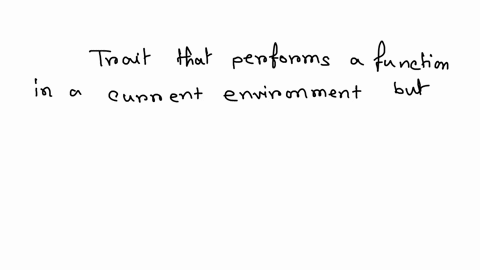 Trait that performs a function
in a current environment but